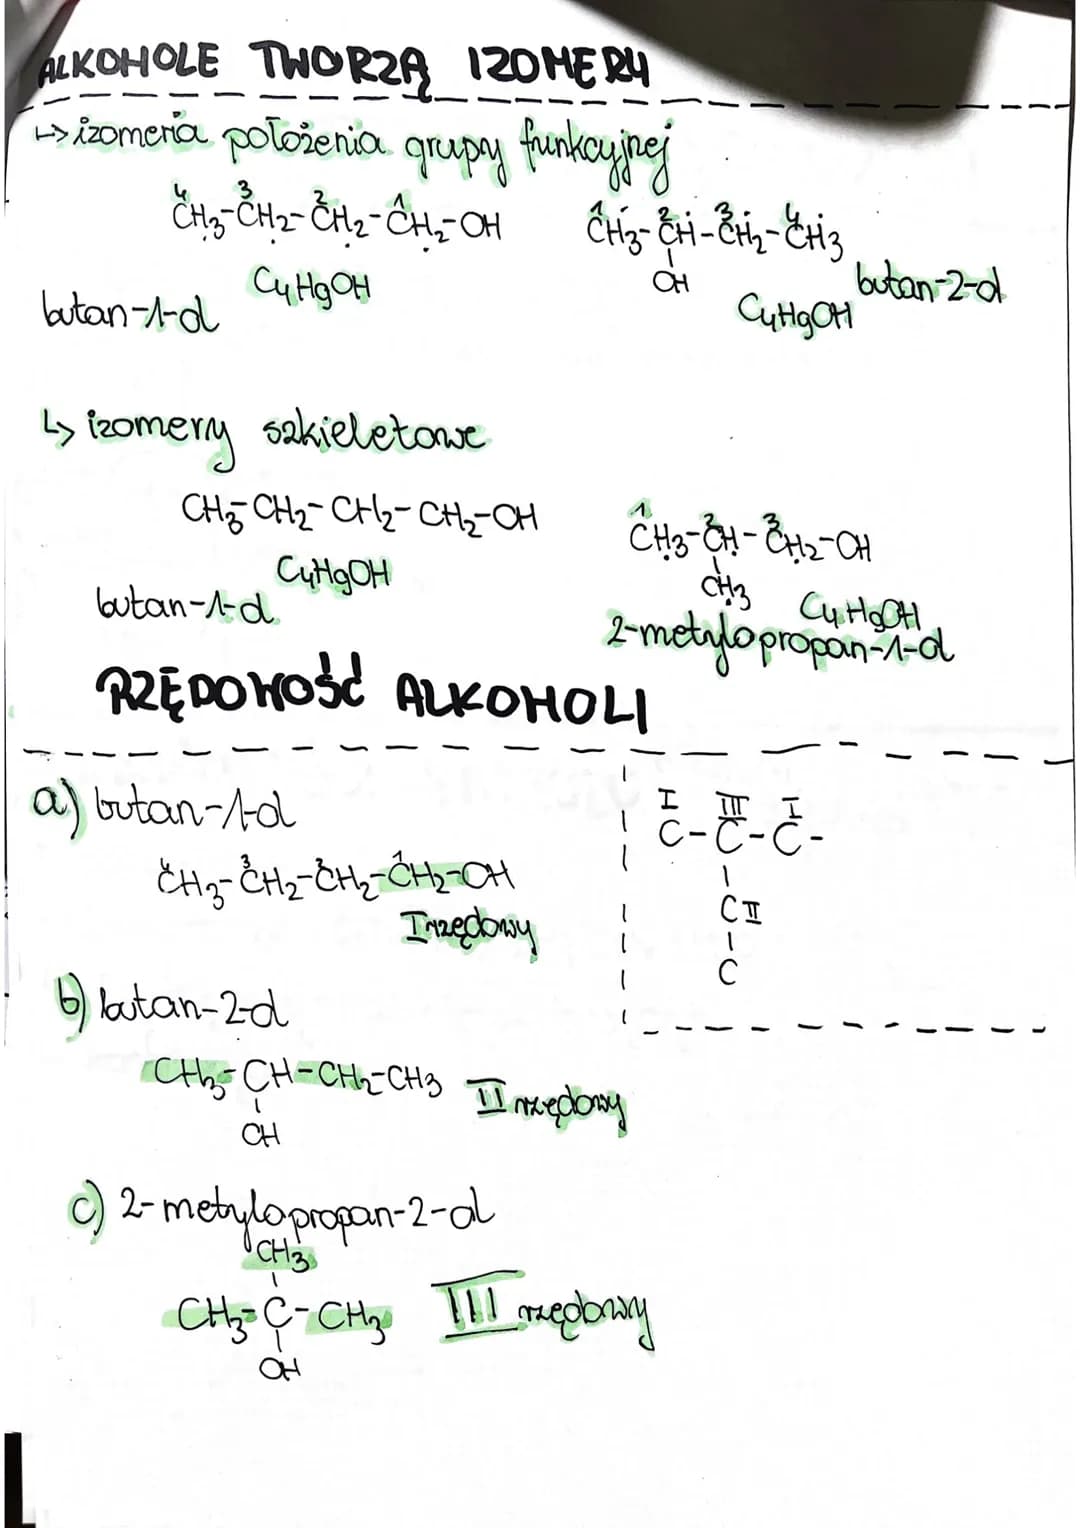 ALKOHOLE TWORZĄ IZOMERY
↳ izomeria położenia grupy funkcyjnej
4 3 2 1
CH3-CH2-CH2-CH2-OH
1 2 3 4
CH3-CH-CH2-CH3
OH
C4H9OH
butan-1-ol
butan-2-ol
C4H9OH
↳ izomery szkieletowe
CH3-CH2-CH2-CH2-OH
C4H9OH
butan-1-ol
1 2 3
CH3-CH-CH2-OH
CH3
C4H9OH
2-metylopropan-1-ol
RZĘDOWOŚĆ ALKOHOLI
a) butan-1-ol
4 3 2 1
CH3-CH2-CH2-CH2-OH
I rzędowy
I III I
C-C-C-
C II
C
b) butan-2-ol
CH3-CH-CH2-CH3
OH
II rzędowy
c) 2-metylopropan-2-ol
CH3
CH3-C-CH3
OH
III rzędowy